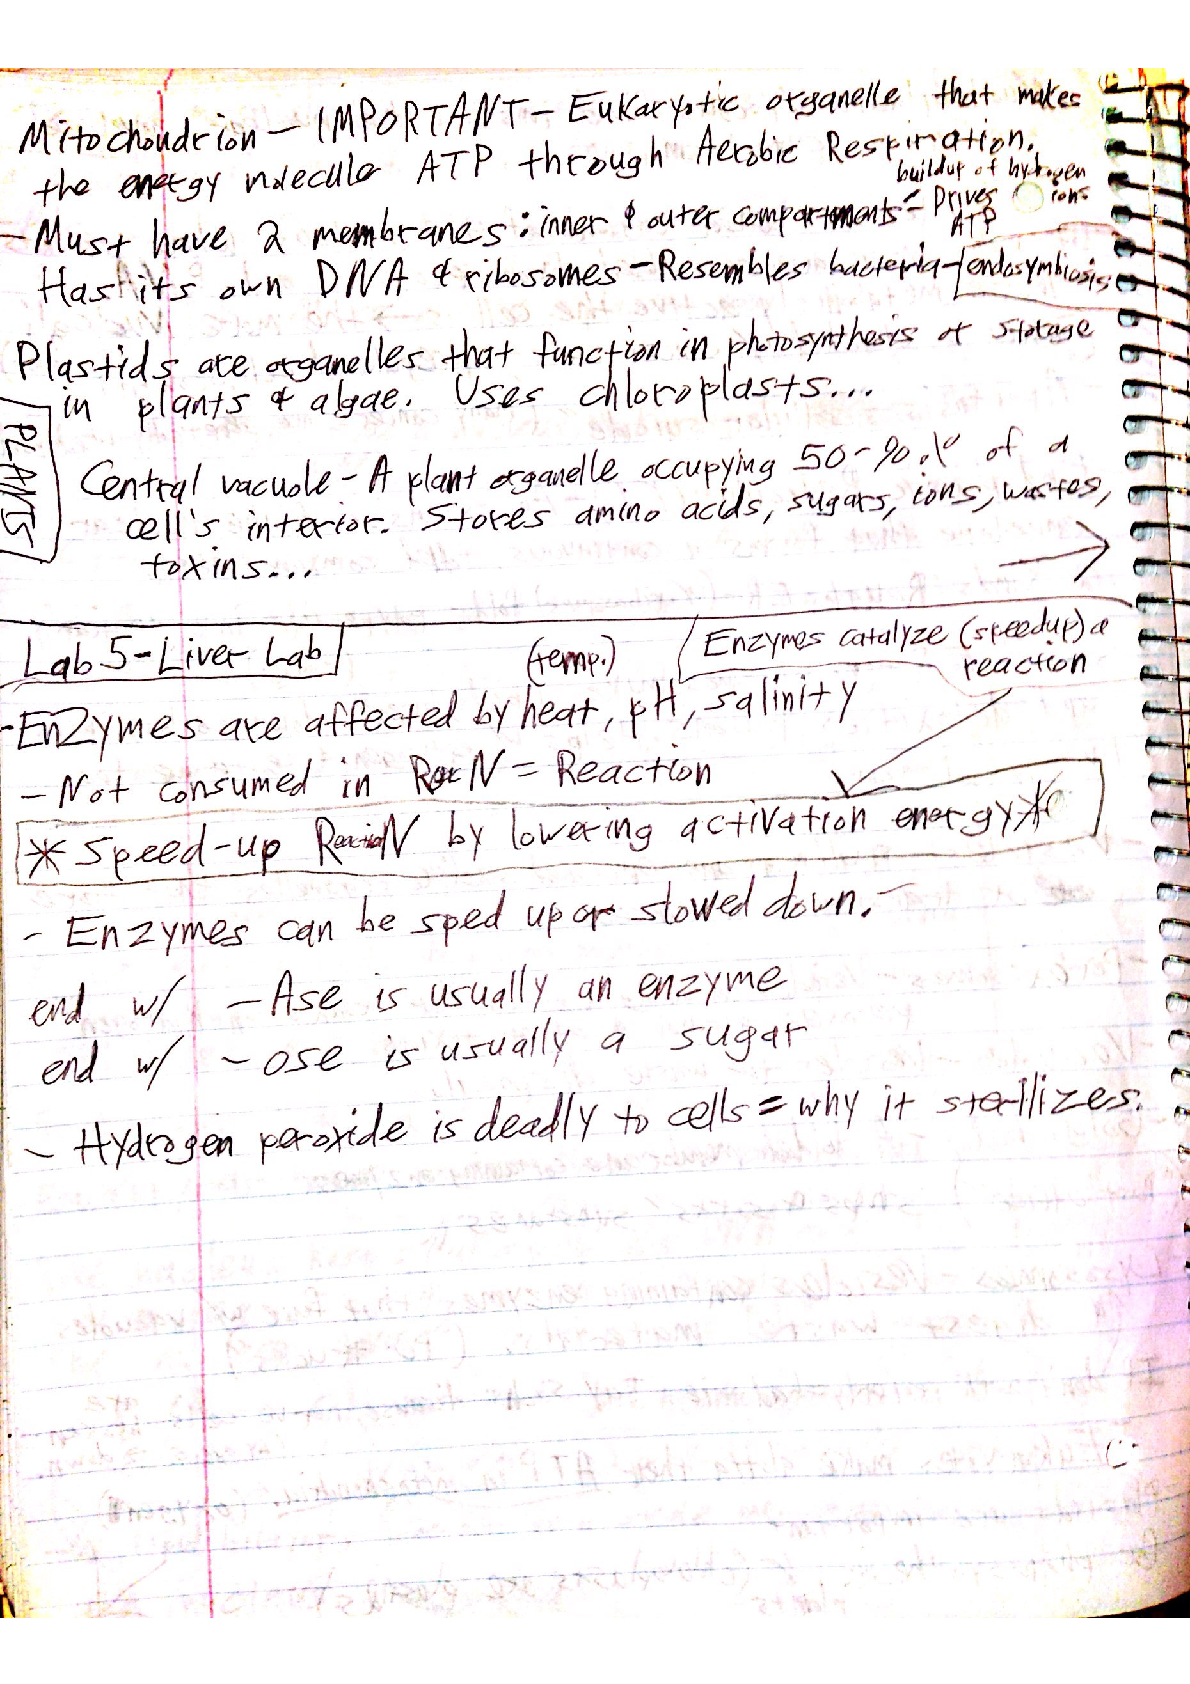 Mitochondrion - IMPORTANT - Eukaryotic organelle that makes
the energy molecule ATP through Aerobic Respiration.
buildup of hydrogen
ions
- Must have 2 membranes: inner & outer compartments = Drives
ATP
Has its own DNA & ribosomes - Resembles bacteria - endosymbiosis
Plastids are organelles that function in photosynthesis or storage
in plants & algae. Uses chloroplasts...
PLANTS
Central vacuole - A plant organelle occupying 50-90% of a
cell's interior. Stores amino acids, sugars, ions, wastes,
toxins...
Lab 5 - Liver Lab
(temp.)
Enzymes catalyze (speedup) a
reaction
- Enzymes are affected by heat, pH, salinity
- Not consumed in RxN = Reaction
* Speed-up ReactioN by lowering activation energy *
- Enzymes can be sped up or slowed down. -
end w/ - Ase is usually an enzyme
end w/ - ose is usually a sugar
- Hydrogen peroxide is deadly to cells = why it sterilizes.